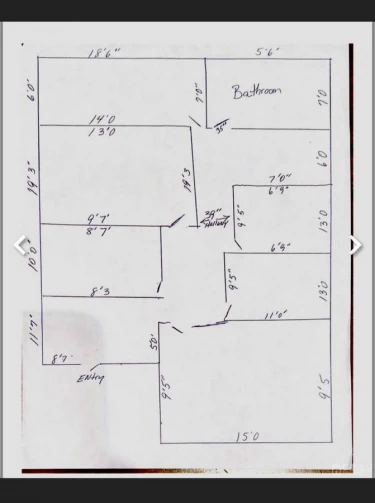 18'6"
5'6"
6'0"
7'0"
Bathroom
7'0"
35"
14'0
13'0
6'0
19'3"
14'3
7'0"
6'9"
9'7'
8'7'
39"
Hallway
9'5"
13'0
10'0"
6'9"
9'5"
13'0
8'3
11'0"
11'7"
5'0'
8'7"
Entry
9'5"
9'5
15'0